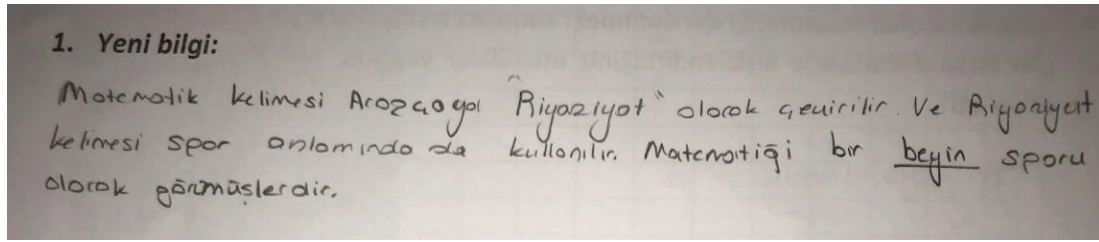 1. Yeni bilgi:
Matematik kelimesi Arapçaya "Riyaziyat" olarak çevirilir. Ve Riyaziyat
kelimesi spor anlamında da kullanılır. Matematiği bir beyin sporu
olarak görmüşlerdir.